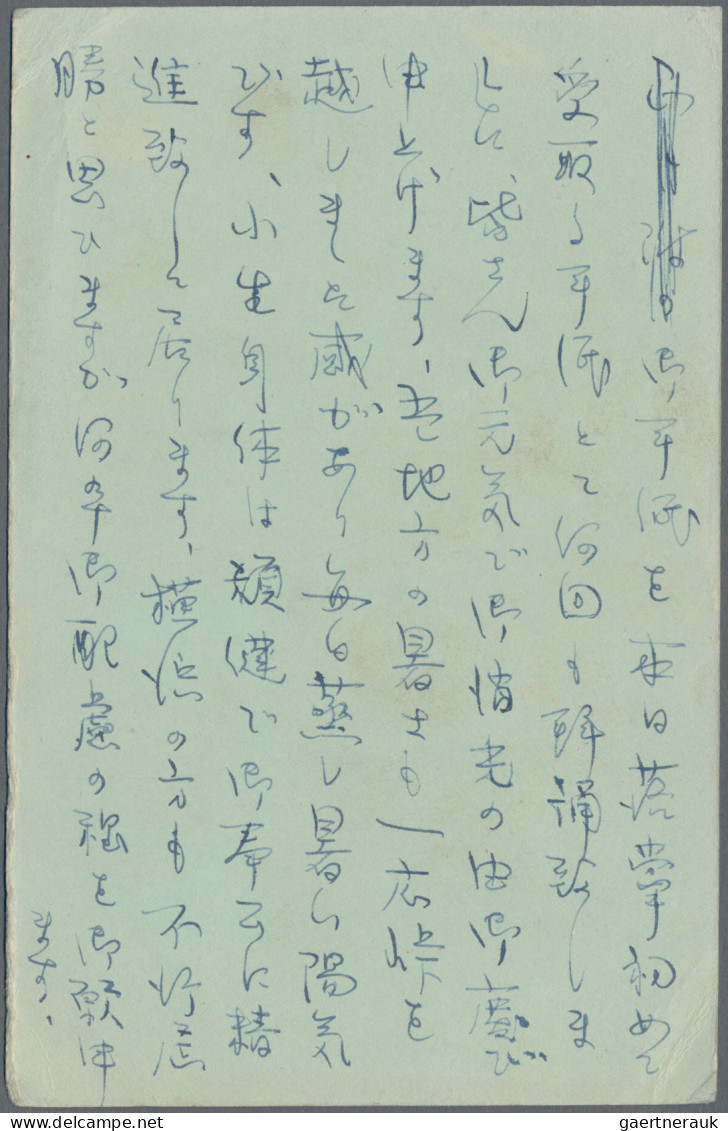 御手紙を本日落掌初めて
受取る手紙とて何回も拝誦致しま
した、皆さん御元気で御消光の由御慶び
申上げます、当地方の暑さも一応峠を
越しました感があり毎日蒸し暑い陽気
です、小生身体は頑健で御奉公に精
進致して居ります、横浜の方も不行届
勝と思ひますが何卒御配慮の程を御願申
ます、
gaertnerauk